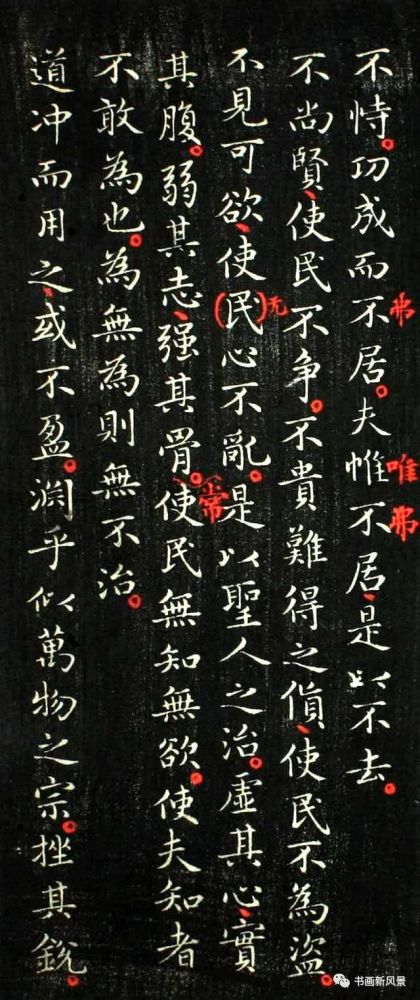 不恃。功成而不居。夫惟不居、是以不去。
弗
唯
弗
不尚賢、使民不争。不貴難得之貨、使民不為盜。
不見可欲、使(民)心不亂。是以聖人之治。虛其心、實
无
其腹。弱其志、强其骨。使民無知無欲。使夫知者
常
不敢為也。為無為則無不治。
道冲而用之、或不盈。渊乎似萬物之宗。挫其銳、
书画新风景